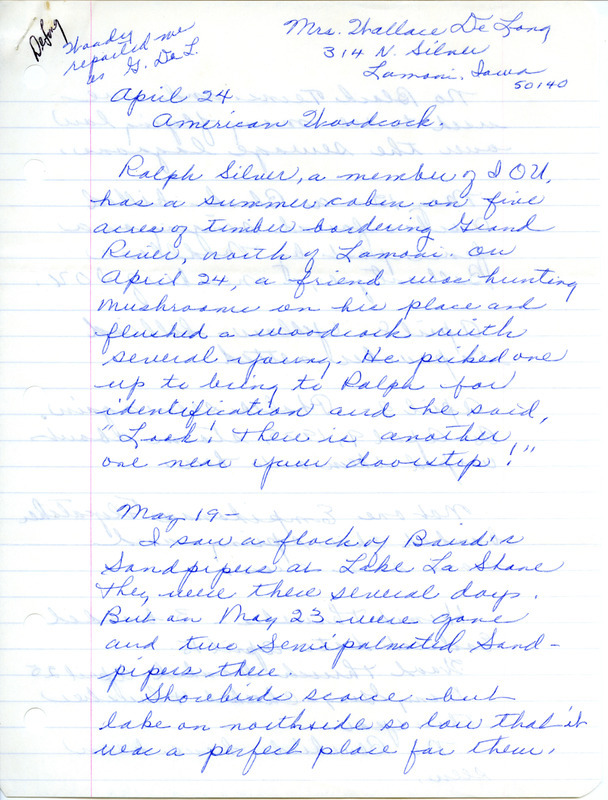 DeLong
Woody
reported me
as G. De L.
Mrs. Wallace De Long
314 N. Silver
Lamoni, Iowa
50140
April 24
American Woodcock.
Ralph Silver, a member of IOU,
has a summer cabin on five
acres of timber bordering Grand
River, north of Lamoni. On
April 24, a friend was hunting
mushrooms on his place and
flushed a woodcock with
several young. He picked one
up to bring to Ralph for
identification and he said,
"Look! There is another
one near your doorstep!"
May 19 -
I saw a flock of Baird's
Sandpipers at Lake La Shane
They were there several days.
But on May 23 were gone
and two Semipalmated Sand-
pipers there.
Shorebirds scarce but
lake on northside so low that it
was a perfect place for them.